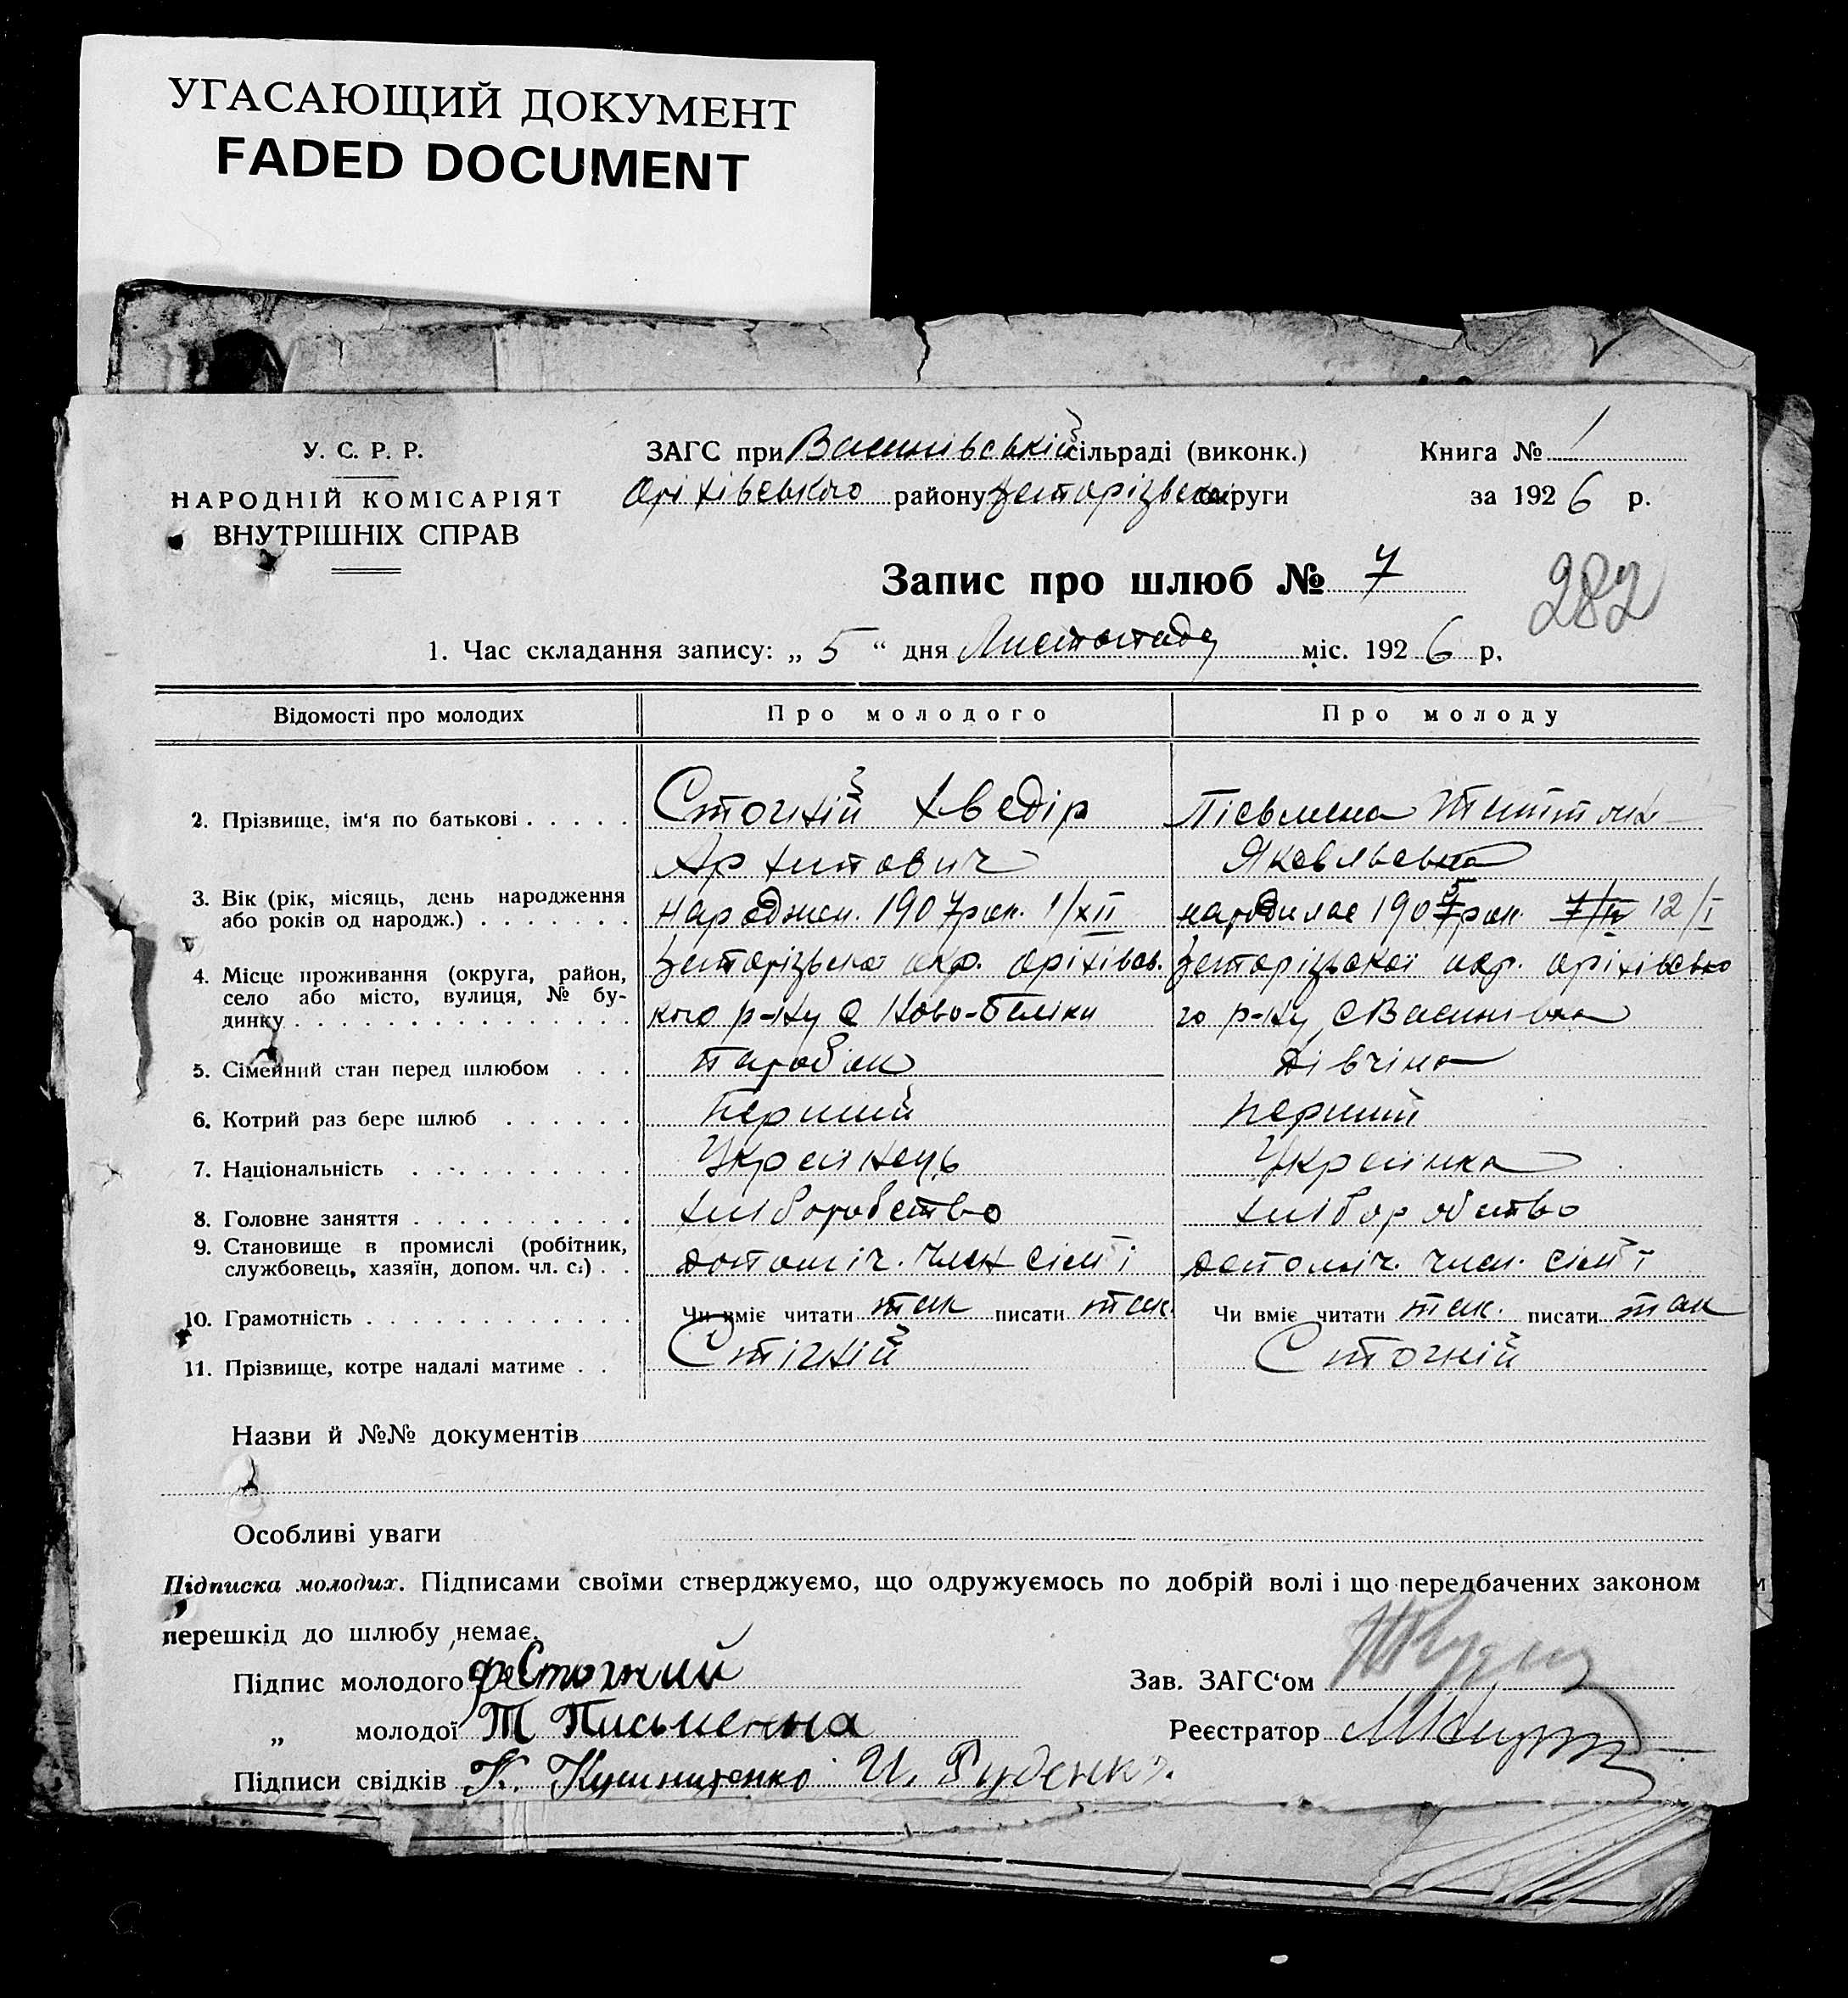 УГАСАЮЩИЙ ДОКУМЕНТ
FADED DOCUMENT
У. С. Р. Р.
НАРОДНІЙ КОМІСАРІЯТ
ВНУТРІШНІХ СПРАВ
ЗАГС при Васинівській сільраді (виконк.)
Оріхівського району Запорізької округи
Книга № 1
за 1926 р.
Запис про шлюб № 7
282
1. Час складання запису: „ 5 “ дня Листопада міс. 1926 р.
Відомості про молодих Про молодого Про молоду
2. Прізвище, ім'я по батькові . . . . .
Стогній Хведір
Архипович
Пісьмена
Яковльевна
3. Вік (рік, місяць, день народження
або років од народж.) . . . . . . .
народжен. 1907 рок. 1/XII
народилас 1905 рок. 7/IV 12/I
4. Місце проживання (округа, район,
село або місто, вулиця, № бу-
динку . . . . . . . . . . . . . . .
Запорізької окр. Оріхівсь.
кого р-ну с Ново-
Запорізької окр. Оріхівсько
го р-ну с Васинівка
5. Сімейний стан перед шлюбом . . . Паробок Дівчіна
6. Котрий раз бере шлюб . . . . . . Перший Перший
7. Національність . . . . . . . . . . Українець Українка
8. Головне заняття . . . . . . . . . . хліборобство хліборобство
9. Становище в промислі (робітник,
службовець, хазяїн, допом. чл. с.) . .
допоміч. член сім'ї допоміч. член. сім'ї
10. Грамотність . . . . . . . . . . . . . Чи вміє читати так писати так. Чи вміє читати так. писати так
11. Прізвище, котре надалі матиме . . Стігній Стогній
Назви й №№ документів
Особливі уваги
Підписка молодих. Підписами своїми стверджуємо, що одружуємось по добрій волі і що передбачених законом
перешкід до шлюбу немає.
Підпис молодого Стогний
„ молодої Т Письменна
Підписи свідків К. Кушниренко И. Руденко.
Зав. ЗАГС'ом
Реєстратор